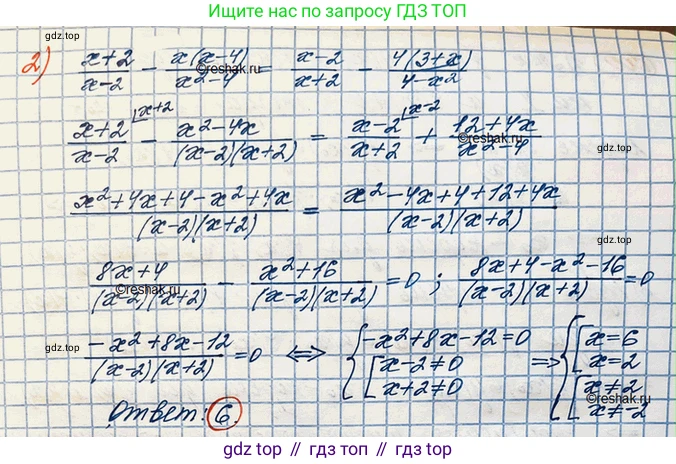 Ищите нас по запросу ГДЗ ТОП
gdz.top
2) (x+2)/(x-2) - x(x-4)/(x²-4) = (x-2)/(x+2) - 4(3+x)/(4-x²)
©reshak.ru
gdz.top
(x+2)/(x-2) ⌊x+2 - (x²-4x)/((x-2)(x+2)) = (x-2)/(x+2) ⌊x-2 + (12+4x)/(x²-4)
©reshak.ru
gdz.top
(x²+4x+4-x²+4x)/((x-2)(x+2)) = (x²-4x+4+12+4x)/((x-2)(x+2))
(8x+4)/((x-2)(x+2)) - (x²+16)/((x-2)(x+2)) = 0 ; (8x+4-x²-16)/((x-2)(x+2)) = 0
©reshak.ru
gdz.top
(-x²+8x-12)/((x-2)(x+2)) = 0 ⇔ { -x²+8x-12=0 [ x-2≠0 x+2≠0 ⇒ { [ x=6 x=2 [ x≠2 x≠-2
gdz.top
©reshak.ru
Ответ: 6.
gdz top // гдз топ // gdz.top